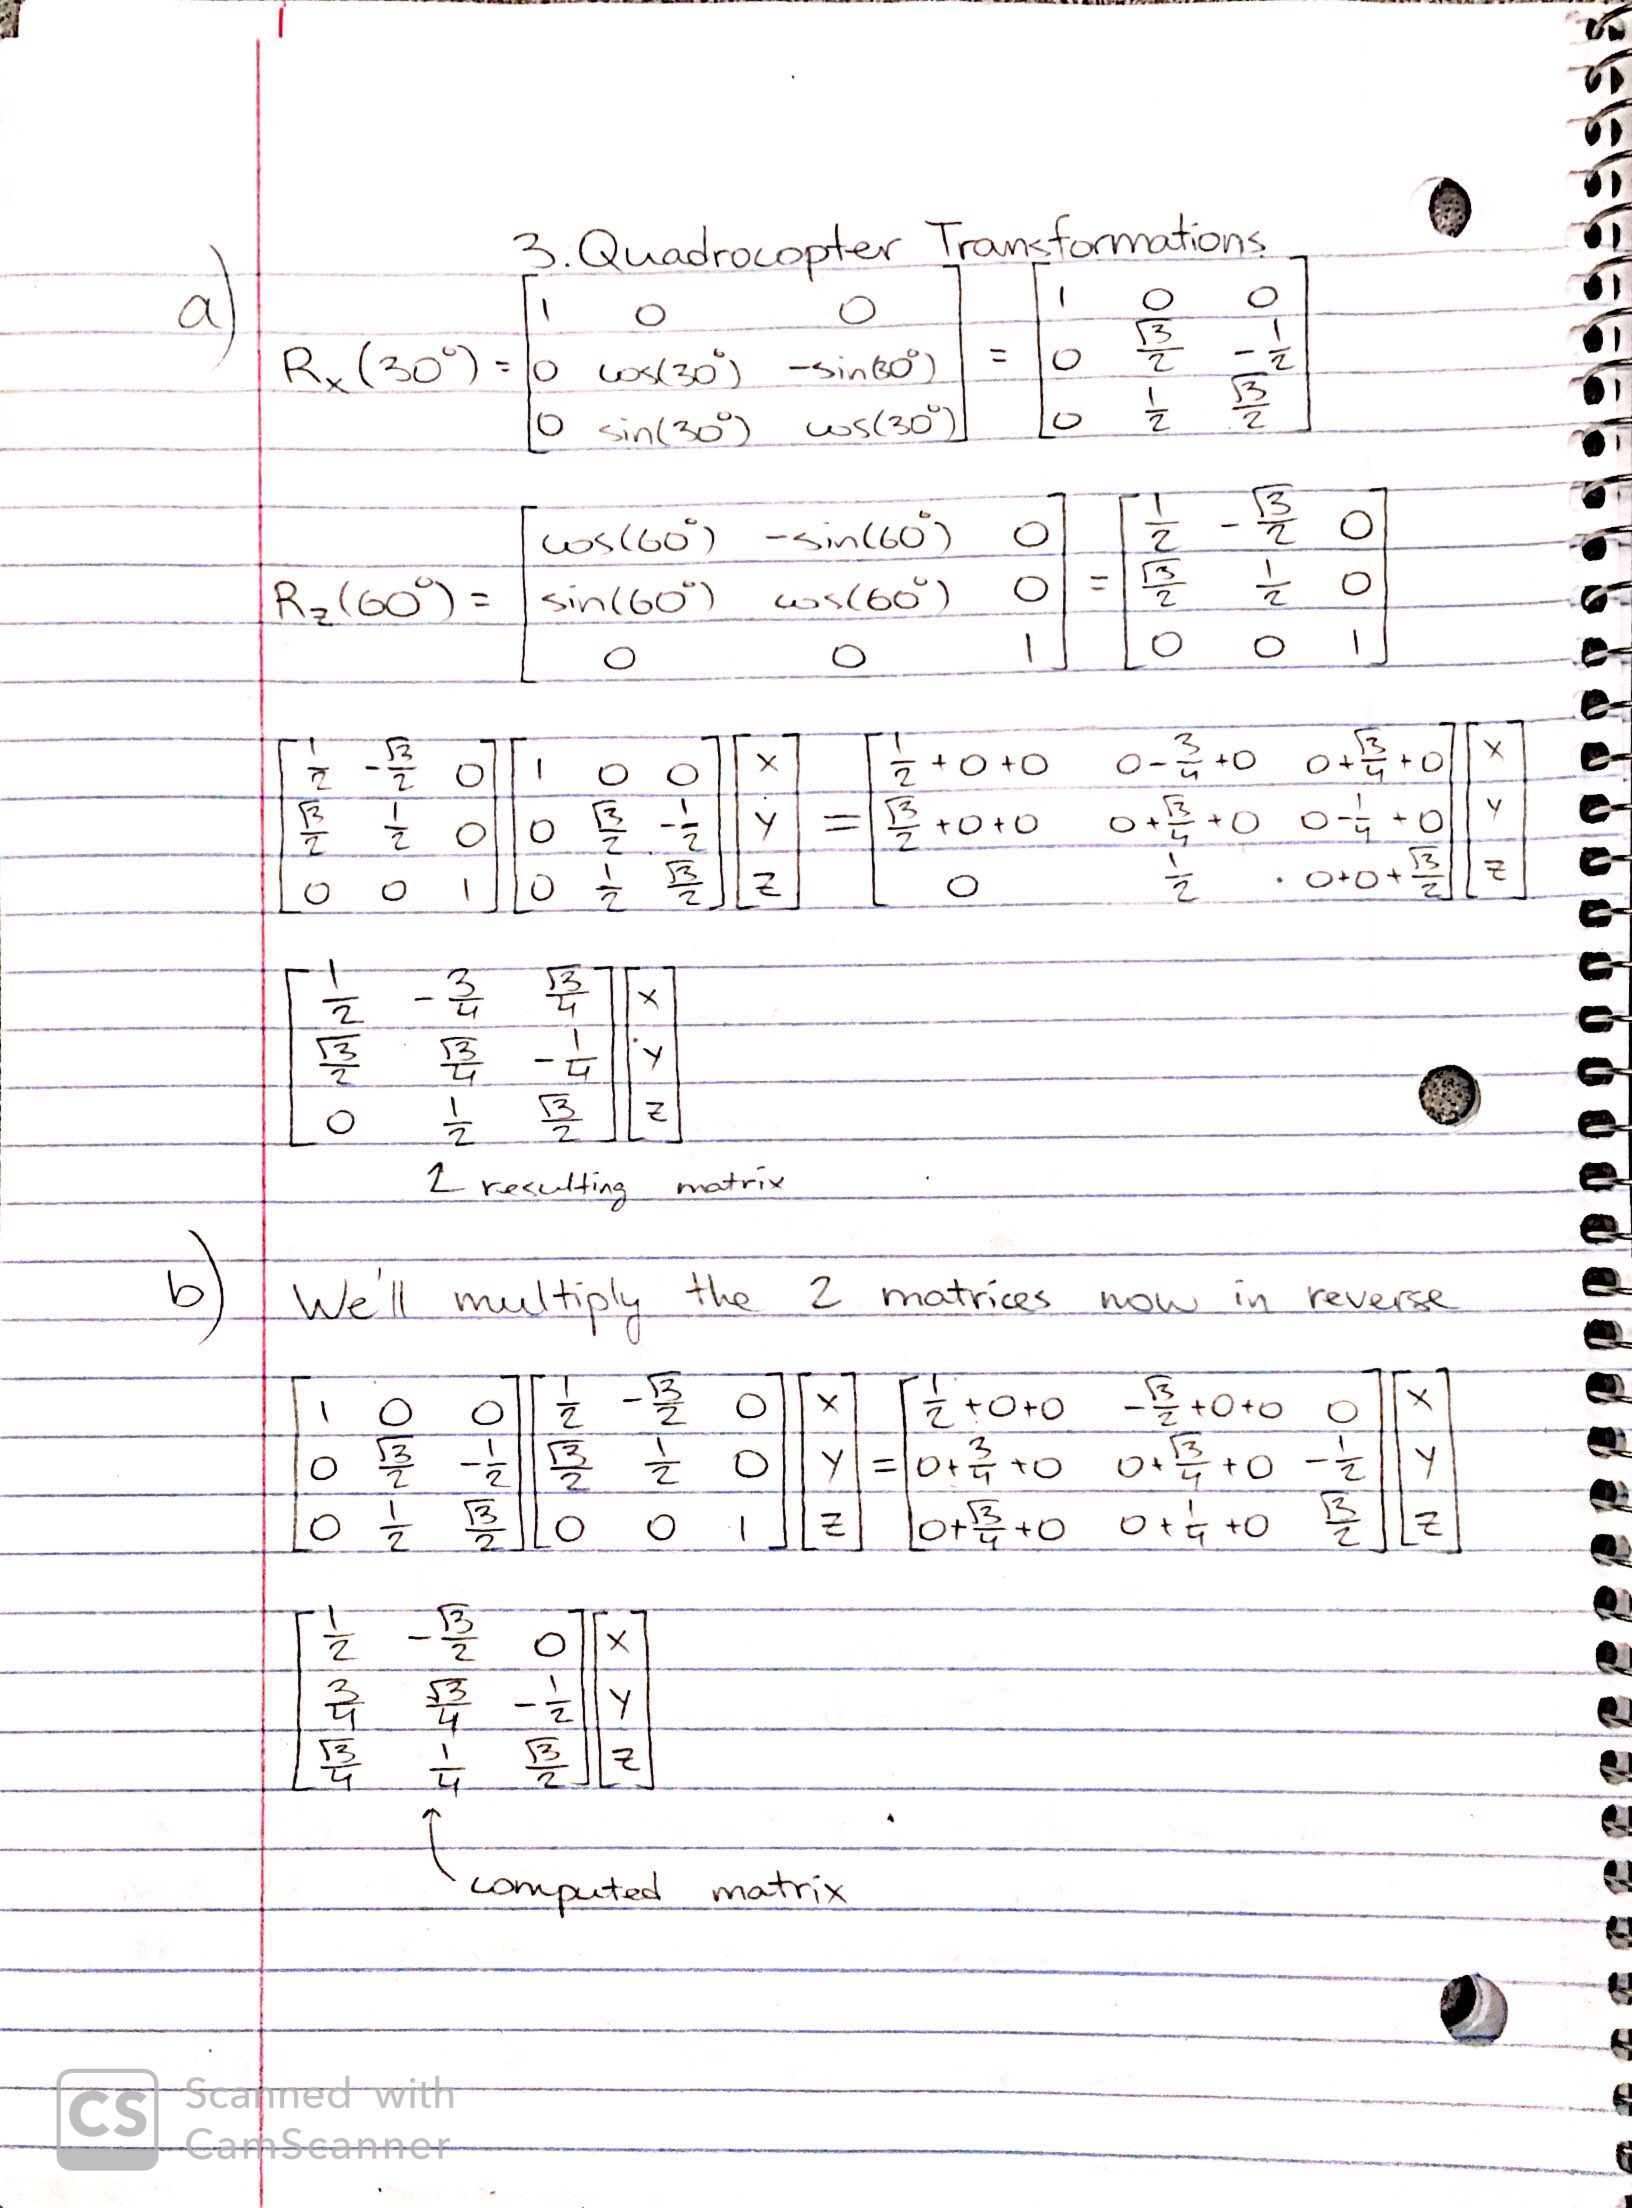 3. Quadrocopter Transformations
a)
R_x(30°) = [1 0 0; 0 cos(30°) -sin(30°); 0 sin(30°) cos(30°)] = [1 0 0; 0 √3/2 -1/2; 0 1/2 √3/2]
R_z(60°) = [cos(60°) -sin(60°) 0; sin(60°) cos(60°) 0; 0 0 1] = [1/2 -√3/2 0; √3/2 1/2 0; 0 0 1]
[1/2 -√3/2 0; √3/2 1/2 0; 0 0 1] [1 0 0; 0 √3/2 -1/2; 0 1/2 √3/2] [x; y; z] = [1/2+0+0 0-3/4+0 0+√3/4+0; √3/2+0+0 0+√3/4+0 0-1/4+0; 0 1/2 0+0+√3/2] [x; y; z]
[1/2 -3/4 √3/4; √3/2 √3/4 -1/4; 0 1/2 √3/2] [x; y; z]
resulting matrix
b) We'll multiply the 2 matrices now in reverse
[1 0 0; 0 √3/2 -1/2; 0 1/2 √3/2] [1/2 -√3/2 0; √3/2 1/2 0; 0 0 1] [x; y; z] = [1/2+0+0 -√3/2+0+0 0; 0+3/4+0 0+√3/4+0 -1/2; 0+√3/4+0 0+1/4+0 √3/2] [x; y; z]
[1/2 -√3/2 0; 3/4 √3/4 -1/2; √3/4 1/4 √3/2] [x; y; z]
computed matrix
CS Scanned with
CamScanner